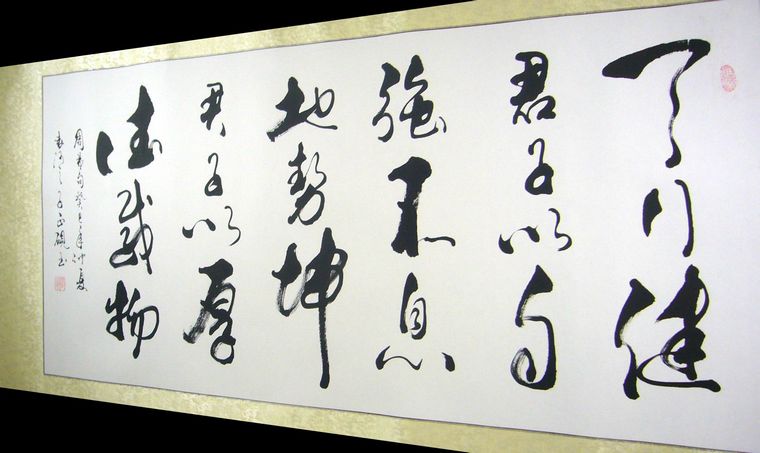 天行健
君子以自
强不息
地势坤
君子以厚
德载物
周易句癸巳年仲夏